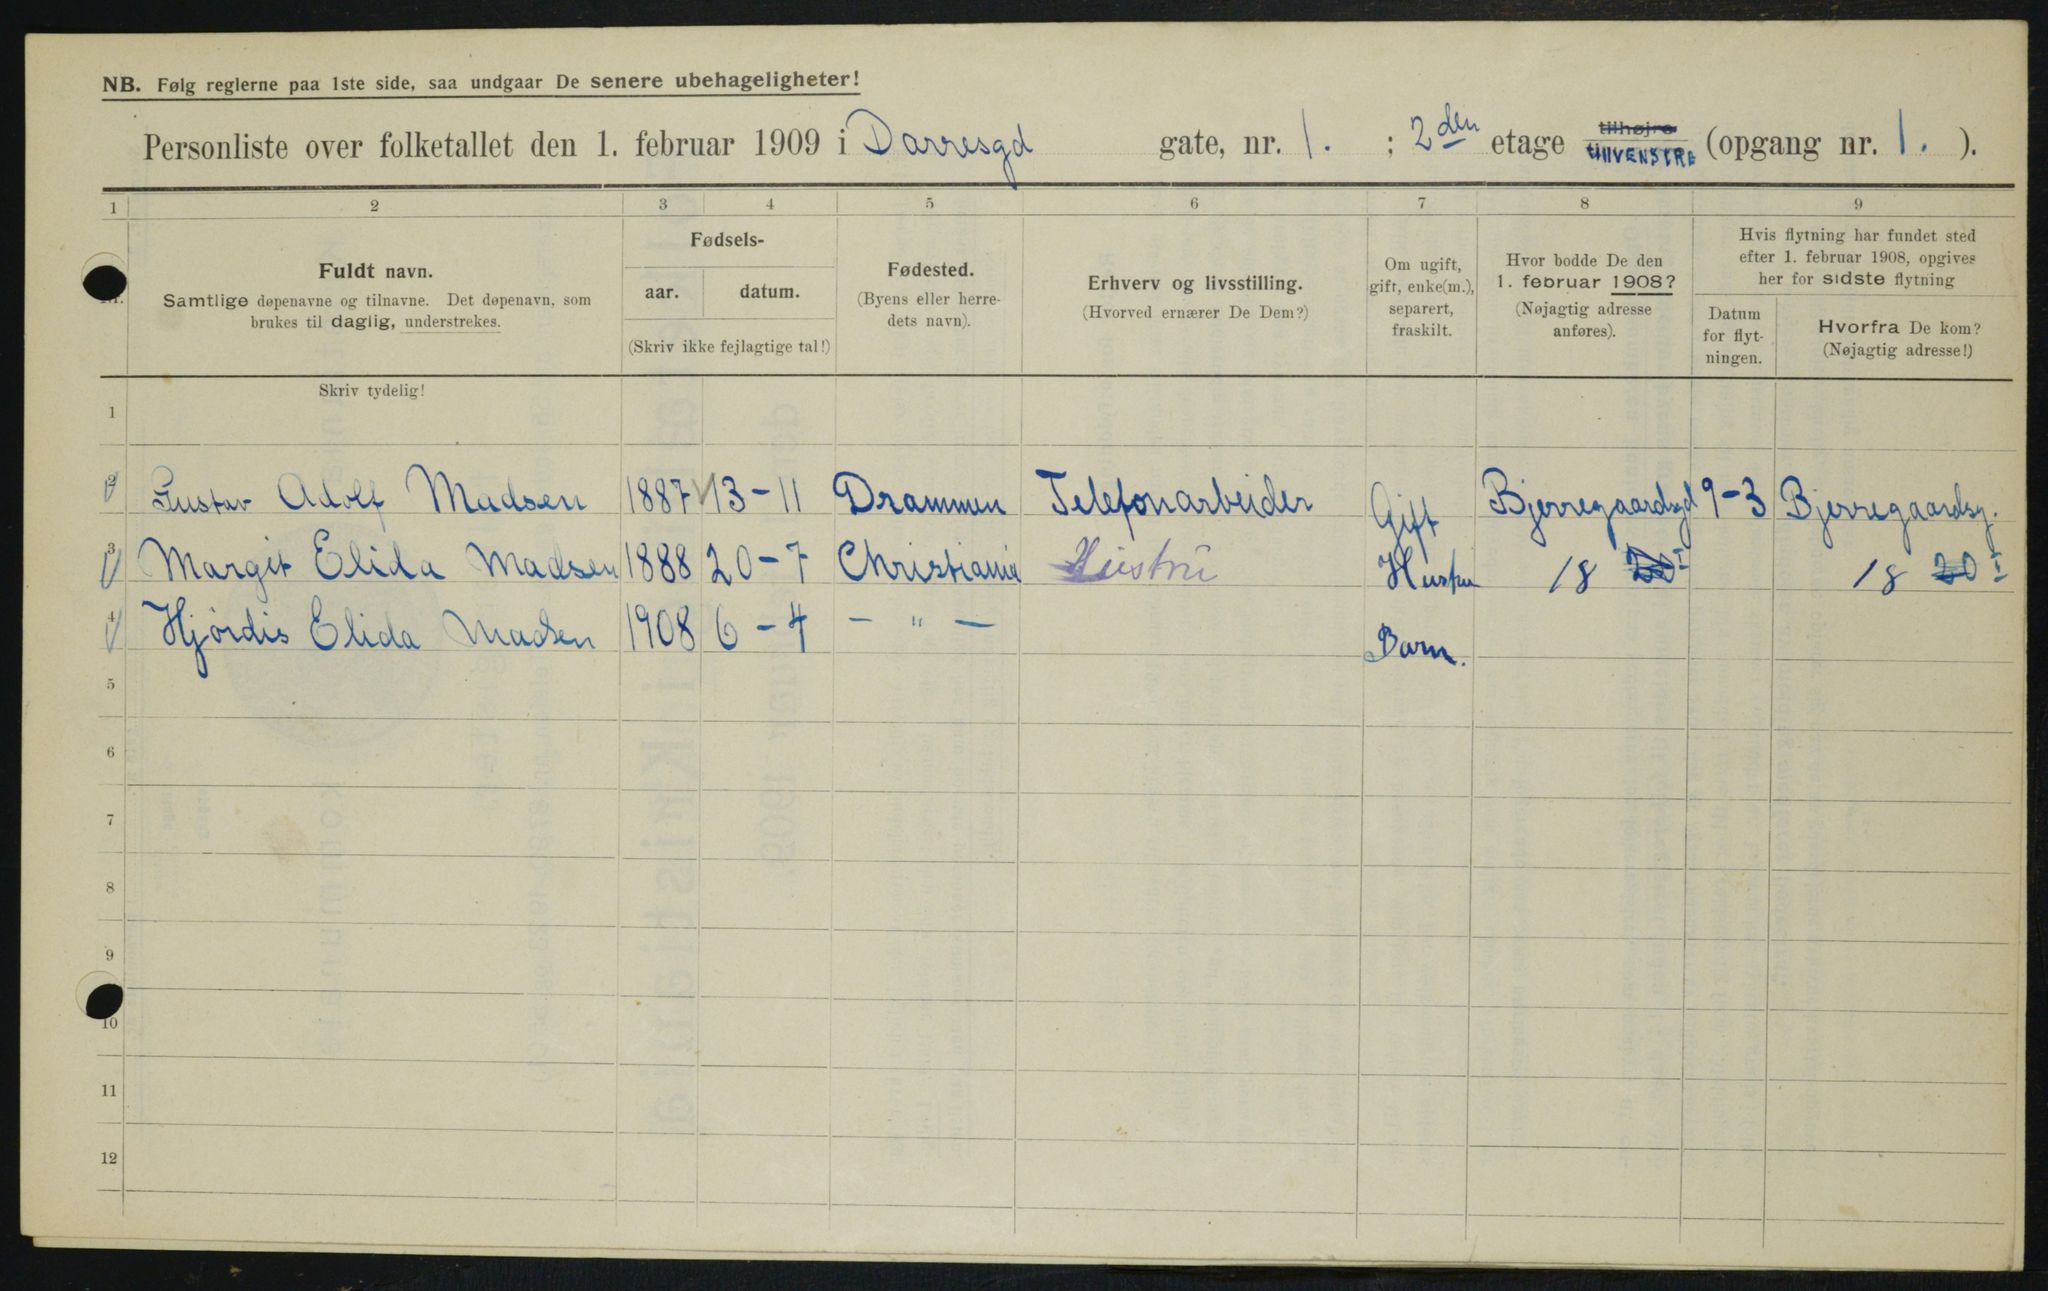 NB. Følg reglerne paa 1ste side, saa undgaar De senere ubehageligheter!
Personliste over folketallet den 1. februar 1909 i Darresgd gate, nr. 1. ; 2den etage tilhøjre tilvenstre (opgang nr. 1. ).
1 2 3 4 5 6 7 8 9
Fuldt navn.
Samtlige døpenavne og tilnavne. Det døpenavn, som
brukes til daglig, understrekes.
Fødsels-
aar. datum.
(Skriv ikke fejlagtige tal!)
Fødested.
(Byens eller herre-
dets navn).
Erhverv og livsstilling.
(Hvorved ernærer De Dem?)
Om ugift,
gift, enke(m.),
separert,
fraskilt.
Hvor bodde De den
1. februar 1908?
(Nøjagtig adresse
anføres).
Hvis flytning har fundet sted
efter 1. februar 1908, opgives
her for sidste flytning
Datum
for flyt-
ningen.
Hvorfra De kom?
(Nøjagtig adresse!)
Skriv tydelig!
1
2 Gustav Adolf Madsen 1887 13-11 Drammen Telefonarbeider Gift Bjerregaardsgd 9-3 Bjerregaardsg.
3 Margit Elida Madsen 1888 20-7 Christiania Hustru Hustru 18 20 I 18 20 I
4 Hjørdis Elida Madsen 1908 6-4 - " - Barn.
5
6
7
8
9
10
11
12